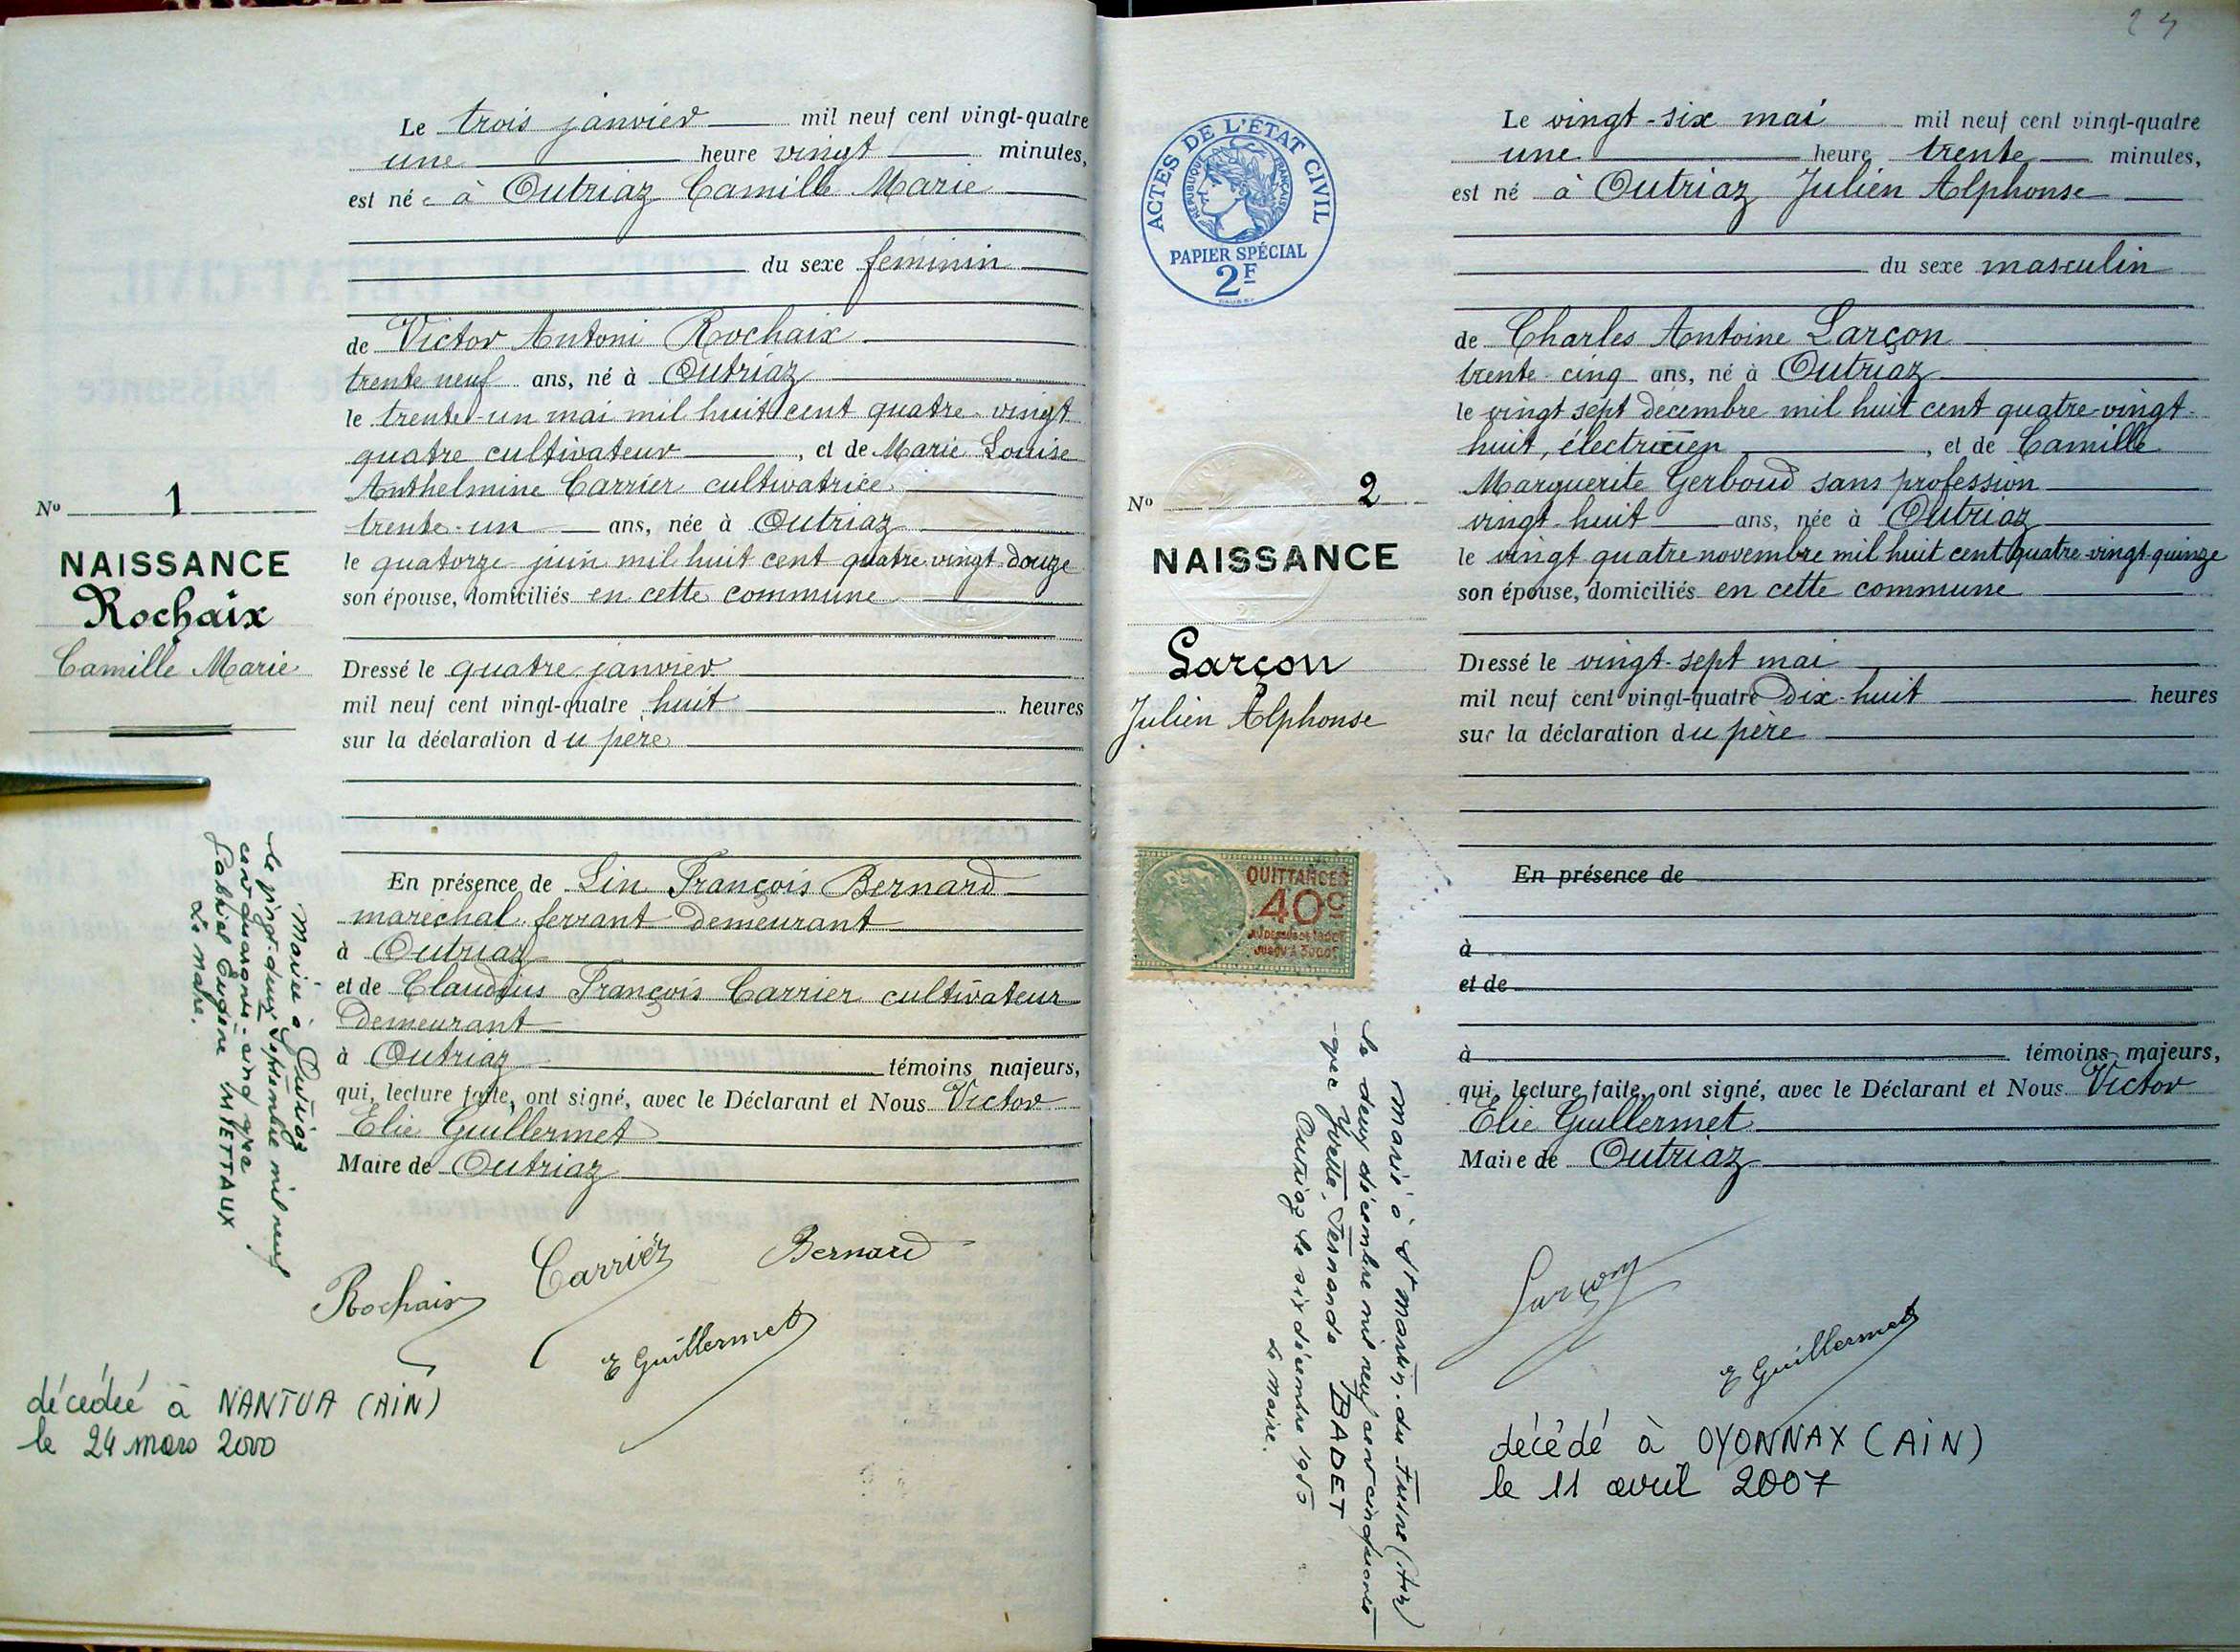 Le trois janvier mil neuf cent vingt-quatre
une heure vingt minutes,
est née à Outriaz Camille Marie
du sexe féminin
de Victor Antoni Rochaix
trente neuf ans, né à Outriaz
le trente-un mai mil huit cent quatre-vingt
quatre cultivateur, et de Marie Louise
Anthelmine Carrier cultivatrice
trente-un ans, née à Outriaz
le quatorze juin mil huit cent quatre vingt douze
son épouse, domiciliés en cette commune
Nº 1
NAISSANCE
Rochaix
Camille Marie
Dressé le quatre janvier
mil neuf cent vingt-quatre huit heures
sur la déclaration du père
En présence de Lin François Bernard
maréchal ferrant demeurant
à Outriaz
et de Claudius François Carrier cultivateur
demeurant
à Outriaz témoins majeurs,
qui, lecture faite, ont signé, avec le Déclarant et Nous Victor
Elie Guillermet
Maire de Outriaz
Mariée à Outriaz
le vingt-deux septembre mil neuf
cent quarante-cinq avec
Gabriel Eugène MIETTAUX
Le Maire.
Rochaix Carrier Bernard
E Guillermet
décédée à NANTUA (AIN)
le 24 mars 2000
ACTES DE L'ÉTAT CIVIL
RÉPUBLIQUE FRANÇAISE
PAPIER SPÉCIAL
2F
Le vingt-six mai mil neuf cent vingt-quatre
une heure trente minutes,
est né à Outriaz Julien Alphonse
du sexe masculin
de Charles Antoine Larçon
trente-cinq ans, né à Outriaz
le vingt sept décembre mil huit cent quatre-vingt-
huit, électricien, et de Camille
Marguerite Gerboud sans profession
vingt-huit ans, née à Outriaz
le vingt quatre novembre mil huit cent quatre-vingt quinze
son épouse, domiciliés en cette commune
Nº 2
NAISSANCE
Larçon
Julien Alphonse
Dressé le vingt-sept mai
mil neuf cent vingt-quatre Dix-huit heures
sur la déclaration du père
QUITTANCES
40c
En présence de
à
et de
à témoins majeurs,
qui, lecture faite, ont signé, avec le Déclarant et Nous Victor
Elie Guillermet
Maire de Outriaz
marié à St Martin-du-Fresne (Ain)
le deux décembre mil neuf cent cinquante
avec Yvette, Fernande BADET
Outriaz le six décembre
Le Maire.
Larçon
E Guillermet
décédé à OYONNAX (AIN)
le 11 avril 2007